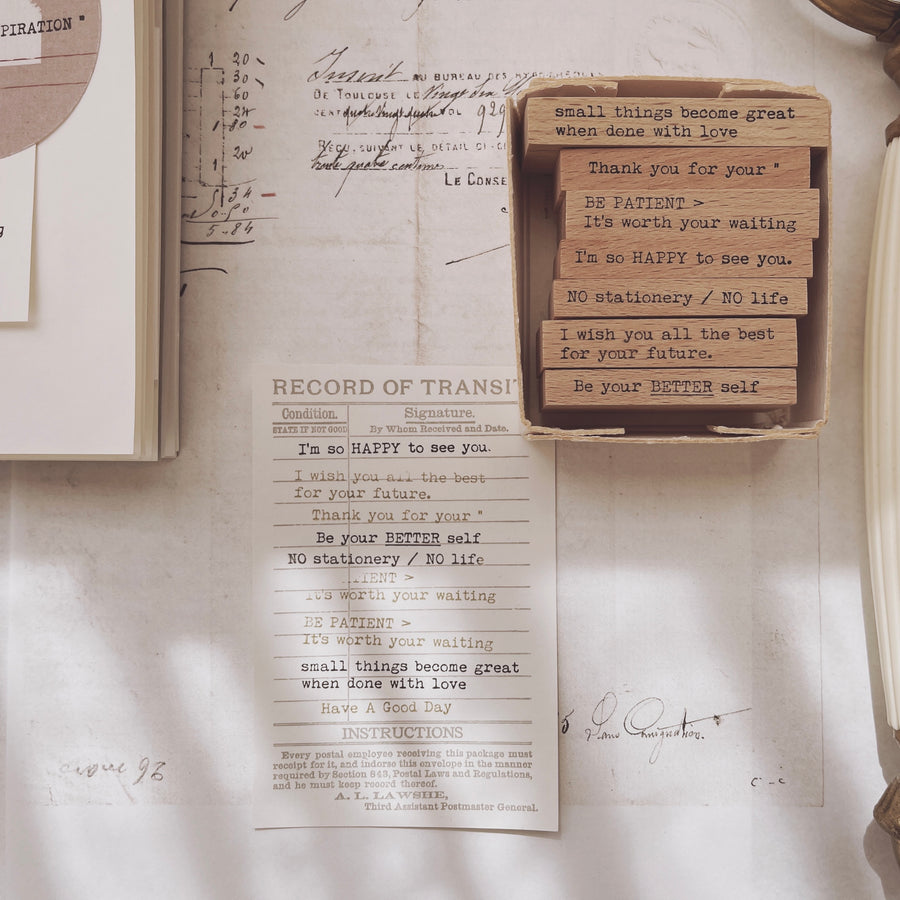 PIRATION "
1 20
30
60
24
1 80
20
1
34
5-84
Inscrit AU BUREAU DES HYPOTHÈQUES
DE TOULOUSE LE Vingt
CENT VOL 929
REÇU, SUIVANT LE DÉTAIL CI-
trente quatre centimes
LE CONSE
small things become great
when done with love
Thank you for your "
BE PATIENT >
It's worth your waiting
I'm so HAPPY to see you.
NO stationery / NO life
I wish you all the best
for your future.
Be your BETTER self
RECORD OF TRANSIT
Condition. Signature.
STATE IF NOT GOOD By Whom Received and Date.
I'm so HAPPY to see you.
I wish you all the best
for your future.
Thank you for your "
Be your BETTER self
NO stationery / NO life
IENT >
It's worth your waiting
BE PATIENT >
It's worth your waiting
small things become great
when done with love
Have A Good Day
INSTRUCTIONS
Every postal employee receiving this package must
receipt for it, and indorse this envelope in the manner
required by Section 843, Postal Laws and Regulations,
and he must keep record thereof.
A. L. LAWSHE,
Third Assistant Postmaster General.